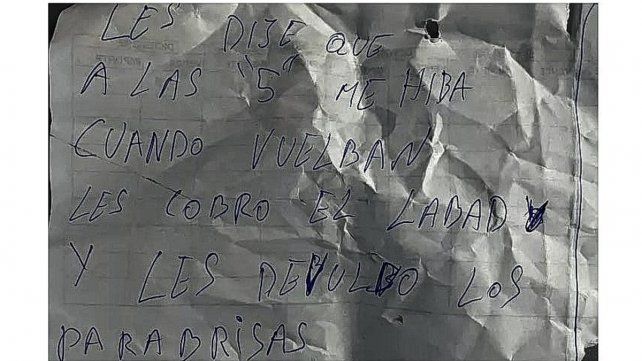 LES DIJE QUE
A LAS "5" ME HIBA
CUANDO VUELBAN
LES COBRO EL LABADO
Y LES DEVULBO LOS
PARABRISAS